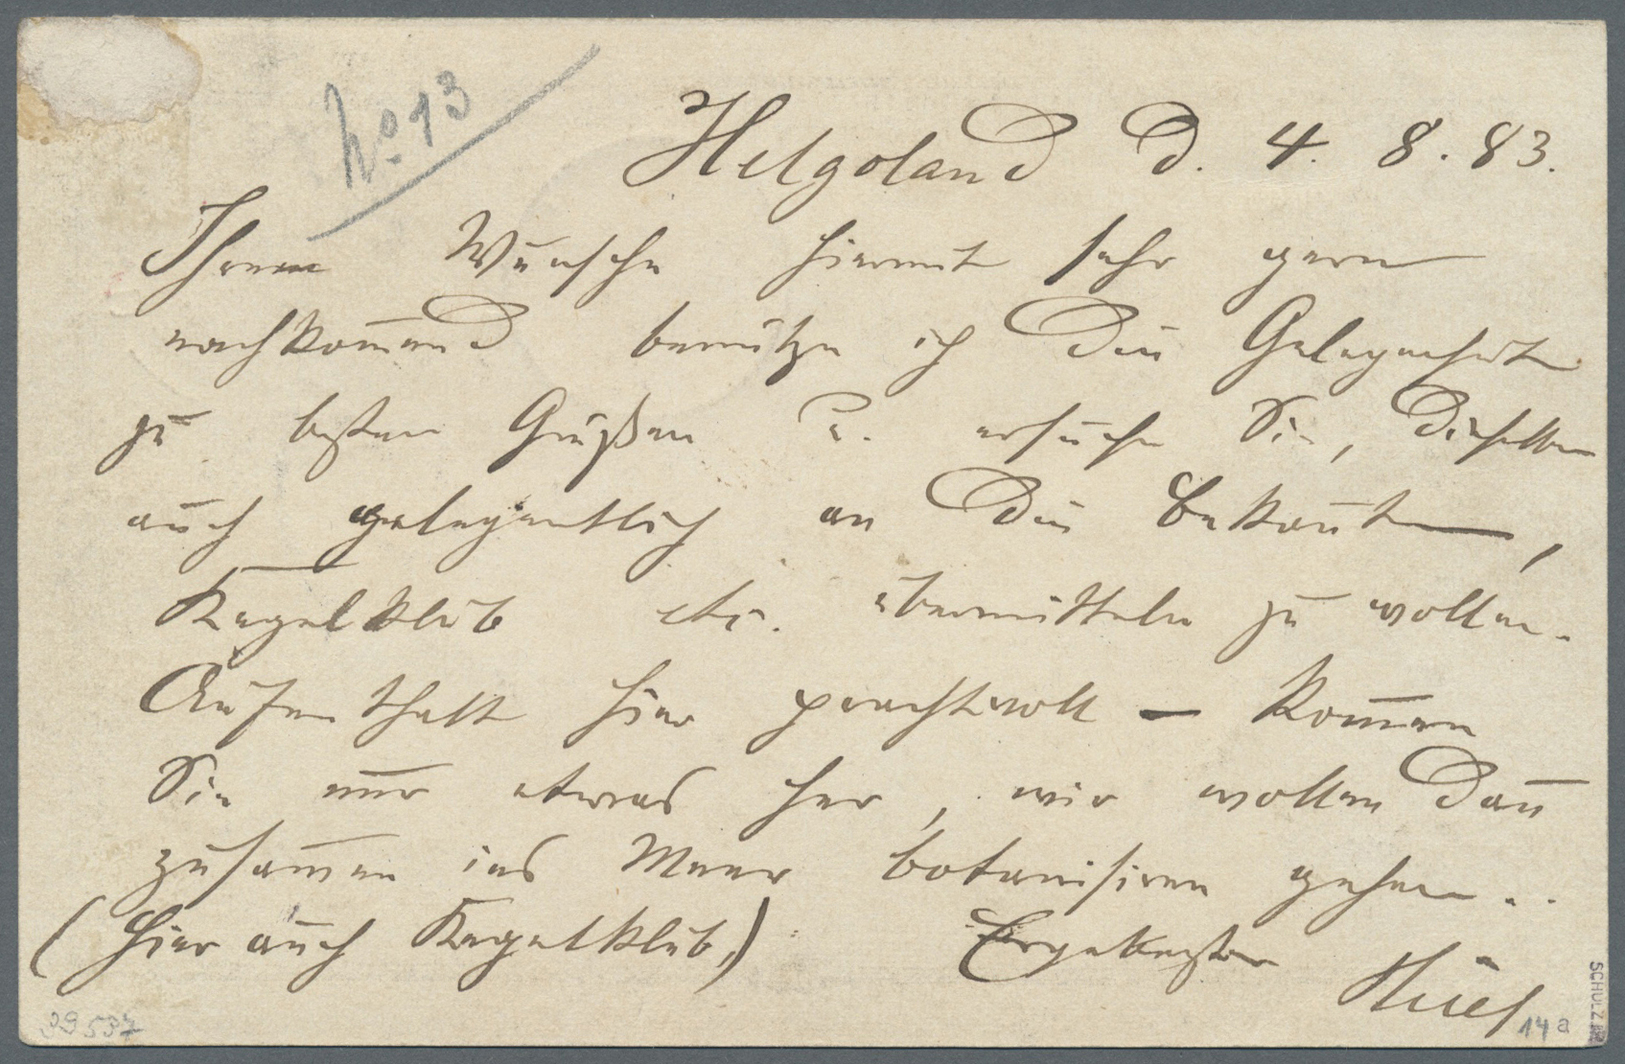 No. 13
Helgoland d. 4. 8. 83.
Ihrem Wunsche hiermit sehr gern
nachkom̅end benütze ich die Gelegenheit
zu besten Grüßen u. ersuche Sie, dieselben
auch gelegentlich an die Bekan̅ten,
Kegelklub etc. übermitteln zu wollen.
Aufenthalt hier prachtvoll — Kom̅en
Sie nur etwas her, wir wollen dan̅
zusam̅en ins Meer botanisiren gehen..
(Hier auch Kegelklub,)
Ergebenster
39537
14a
SCHULZ